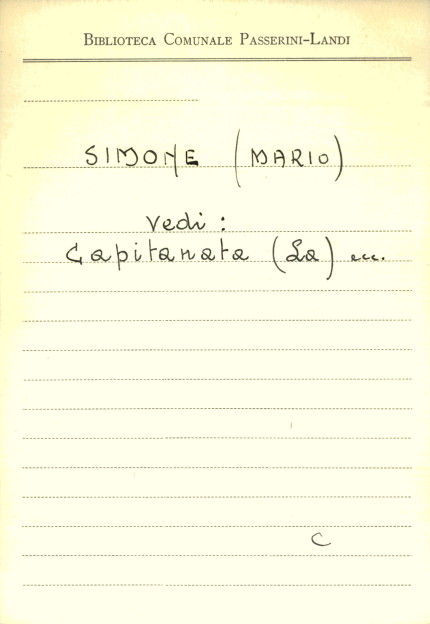 BIBLIOTECA COMUNALE PASSERINI-LANDI
SIMONE (MARIO)
Vedi :
Capitanata (La) ecc.
C